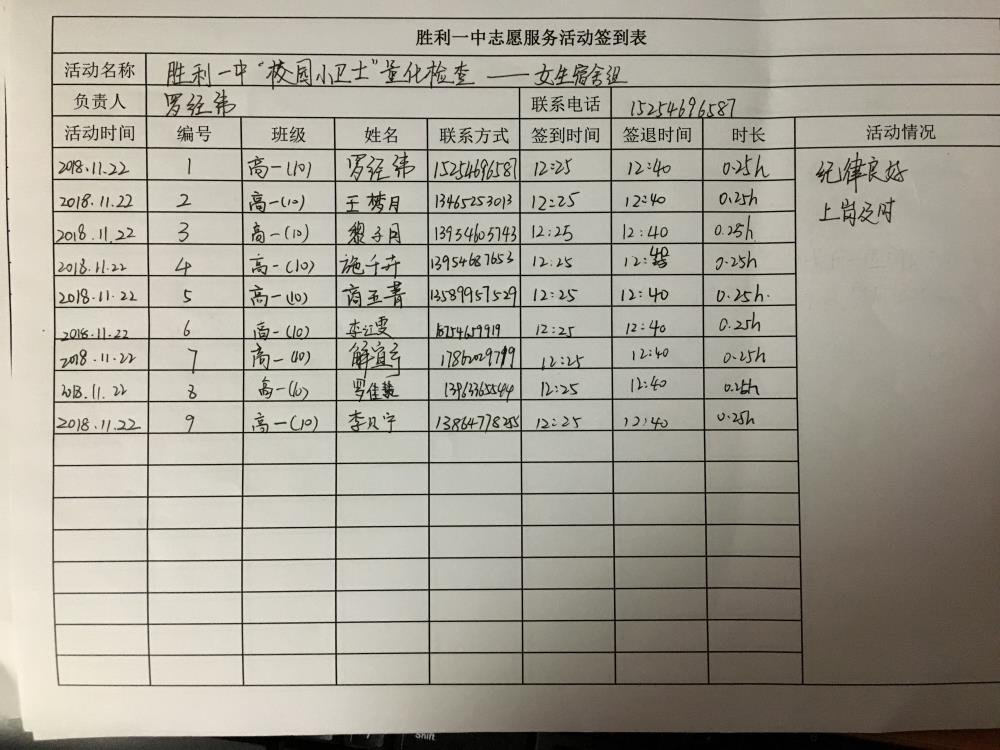 胜利一中志愿服务活动签到表
活动名称 胜利一中“校园小卫士”量化检查——女生宿舍组
负责人 罗经纬 联系电话 15254696587
活动时间 编号 班级 姓名 联系方式 签到时间 签退时间 时长 活动情况
2018.11.22 1 高一(10) 罗经纬 15254696587 12:25 12:40 0.25h 纪律良好
2018.11.22 2 高一(10) 王梦月 13465253013 12:25 12:40 0.25h 上岗及时
2018.11.22 3 高一(10) 黎子月 13954605743 12:25 12:40 0.25h
2018.11.22 4 高一(10) 施千卉 13954687653 12:25 12:40 0.25h
2018.11.22 5 高一(10) 商玉菁 13589957529 12:25 12:40 0.25h.
2018.11.22 6 高一(10) 李江雯 12:25 12:40 0.25h
2018.11.22 7 高一(10) 解宜亭 12:25 12:40 0.25h
2018.11.22 8 高一(10) 罗佳慧 13963365544 12:25 12:40 0.25h
2018.11.22 9 高一(10) 李凡宇 13864778255 12:25 12:40 0.25h
Shift